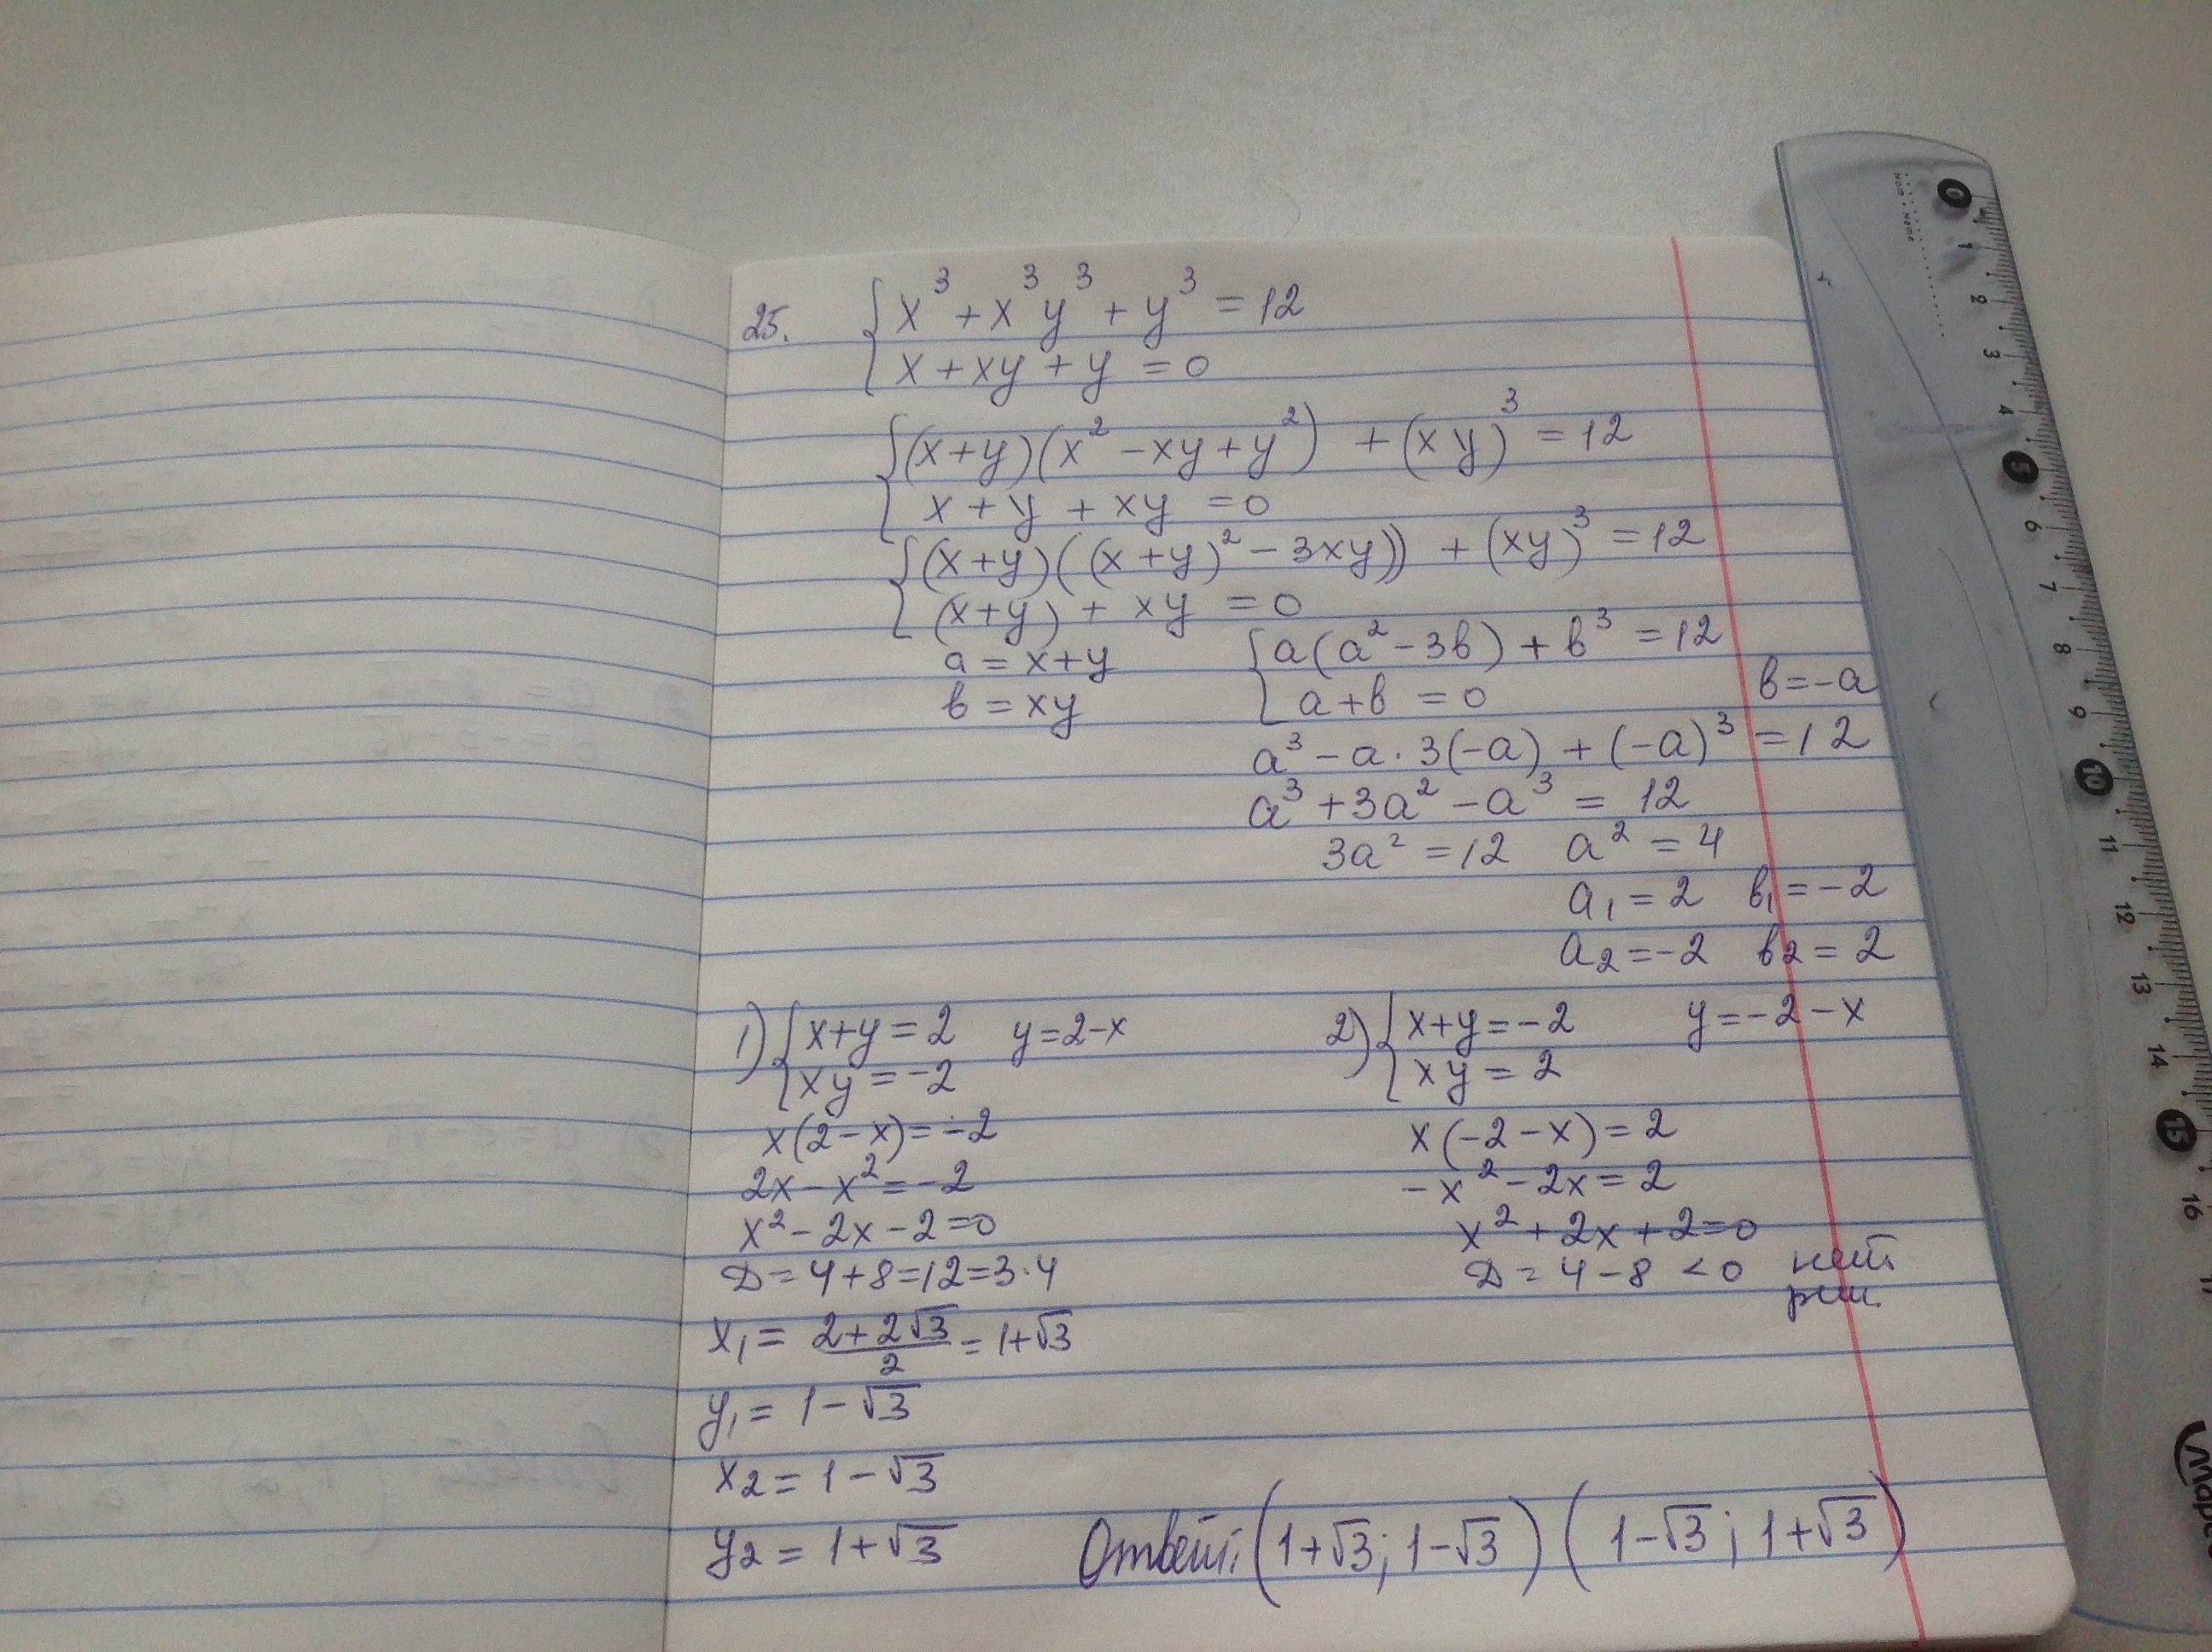 25. { x³ + x³y³ + y³ = 12
{ x + xy + y = 0
{ (x+y)(x² - xy + y²) + (xy)³ = 12
{ x + y + xy = 0
{ (x+y)((x+y)² - 3xy)) + (xy)³ = 12
{ (x+y) + xy = 0
a = x+y
в = xy
{ a(a² - 3в) + в³ = 12
{ a+в = 0 в = -a
a³ - a · 3(-a) + (-a)³ = 12
a³ + 3a² - a³ = 12
3a² = 12 a² = 4
a₁ = 2 в₁ = -2
a₂ = -2 в₂ = 2
1) { x+y = 2 y = 2-x
{ xy = -2
x(2-x) = -2
2x - x² = -2
x² - 2x - 2 = 0
D = 4+8 = 12 = 3·4
x₁ = (2+2√3)/2 = 1+√3
y₁ = 1-√3
x₂ = 1-√3
y₂ = 1+√3
2) { x+y = -2 y = -2-x
{ xy = 2
x(-2-x) = 2
-x² - 2x = 2
x² + 2x + 2 = 0
D = 4-8 < 0 нет
реш.
Ответ: (1+√3; 1-√3) (1-√3; 1+√3)
0 1 2 3 4 5 6 7 8 9 10 11 12 13 14 15 16
Nom • Name